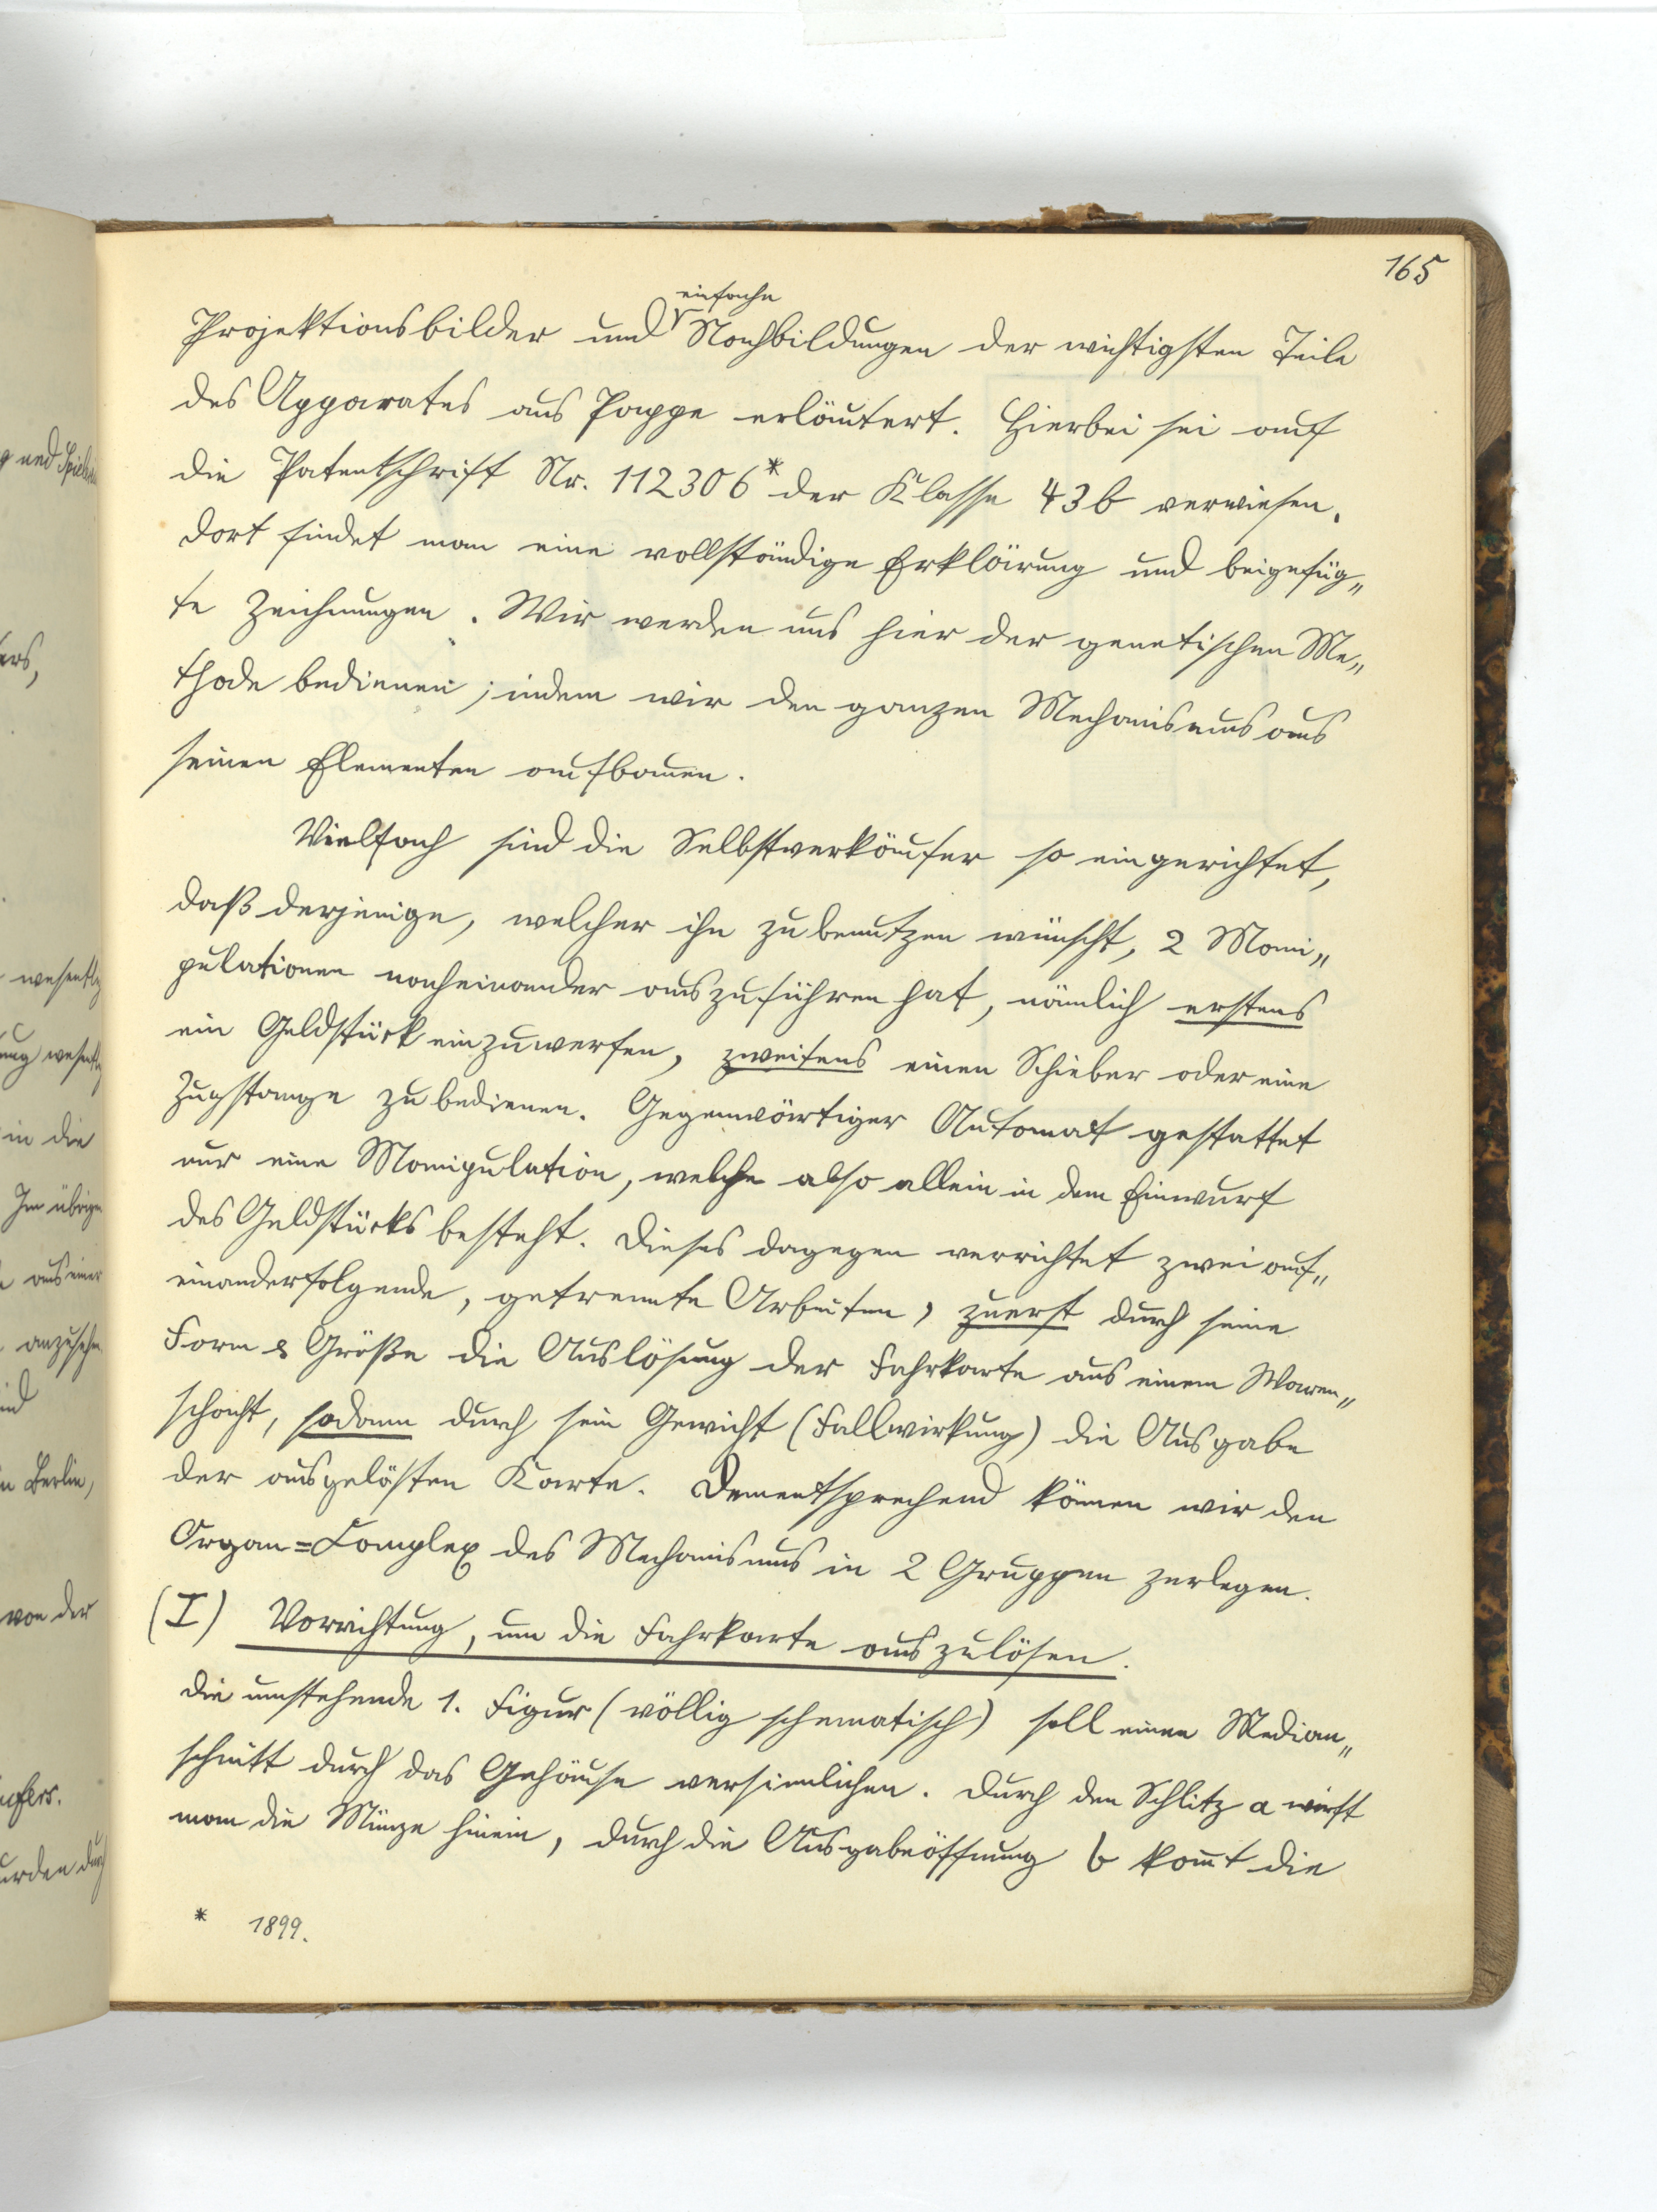 165
einfache
Projektionsbilder und Nachbildungen der wichtigsten Teile
des Apparates aus Pappe erläutert. Hierbei sei auf
die Patentschrift Nr. 112306* der Klasse 43b verwiesen.
Dort findet man eine vollständige Erklärung und beigefüg„
te Zeichnungen. Wir werden uns hier der genetischen Me„
thode bedienen; indem wir den ganzen Mechanismus aus
seinen Elementen aufbauen.
Vielfach sind die Selbstverkäufer so eingerichtet,
daß derjenige, welcher ihn zu benutzen wünscht, 2 Mani„
pulationen nacheinander auszuführen hat, nämlich erstens
ein Geldstück einzuwerfen, zweitens einen Schieber oder eine
Zugstange zu bedienen. Gegenwärtiger Automat gestattet
nur eine Manipulation, welche also allein in dem Einwurf
des Geldstücks besteht. Dieses dagegen verrichtet zwei auf„
einanderfolgende, getrennte Arbeiten, zuerst durch seine
Form & Größe die Auslösung der Fahrkarte aus einem Waren„
schacht, sodann durch sein Gewicht (Fallwirkung) die Ausgabe
der ausgelösten Karte. Dementsprechend können wir den
Organ=Complex des Mechanismus in 2 Gruppen zerlegen.
(I) Vorrichtung, um die Fahrkarte auszulösen.
Die umstehende 1. Figur (völlig schematisch) soll einen Median„
schnitt durch das Gehäuse versinnlichen. Durch den Schlitz a wirft
man die Münze hinein, durch die Ausgabeöffnung b kom̅t die
* 1899.
g und
ers,
wesentlg
ung wesentlg
in die
Im übrigen
aus einer
anzusehen
ind
in Berlin,
von der
äufers.
urden durch